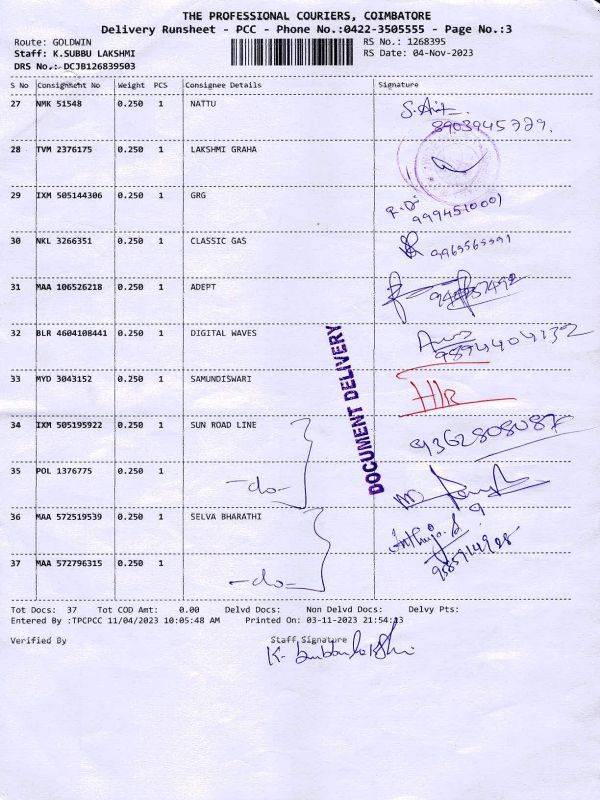 THE PROFESSIONAL COURIERS, COIMBATORE
Delivery Runsheet - PCC - Phone No.:0422-3505555 - Page No.:3
Route: GOLDWIN RS No.: 1268395
Staff: K.SUBBU LAKSHMI RS Date: 04-Nov-2023
DRS No.:- DCJB126839503
S No Consignment No Weight PCS Consignee Details Signature
27 NMK 51548 0.250 1 NATTU
8903945779.
28 TVM 2376175 0.250 1 LAKSHMI GRAHA
29 IXM 505144306 0.250 1 GRG
9994510001
30 NKL 3266351 0.250 1 CLASSIC GAS
31 MAA 106526218 0.250 1 ADEPT
32 BLR 4604108441 0.250 1 DIGITAL WAVES
9894404132
33 MYD 3043152 0.250 1 SAMUNDISWARI
DOCUMENT DELIVERY
34 IXM 505195922 0.250 1 SUN ROAD LINE
9362808087
35 POL 1376775 0.250 1 -do-
36 MAA 572519539 0.250 1 SELVA BHARATHI
37 MAA 572796315 0.250 1 -do-
Tot Docs: 37 Tot COD Amt: 0.00 Delvd Docs: Non Delvd Docs: Delvy Pts:
Entered By :TPCPCC 11/04/2023 10:05:48 AM Printed On: 03-11-2023 21:54:13
Verified By Staff Signature
K. Subbulakshmi